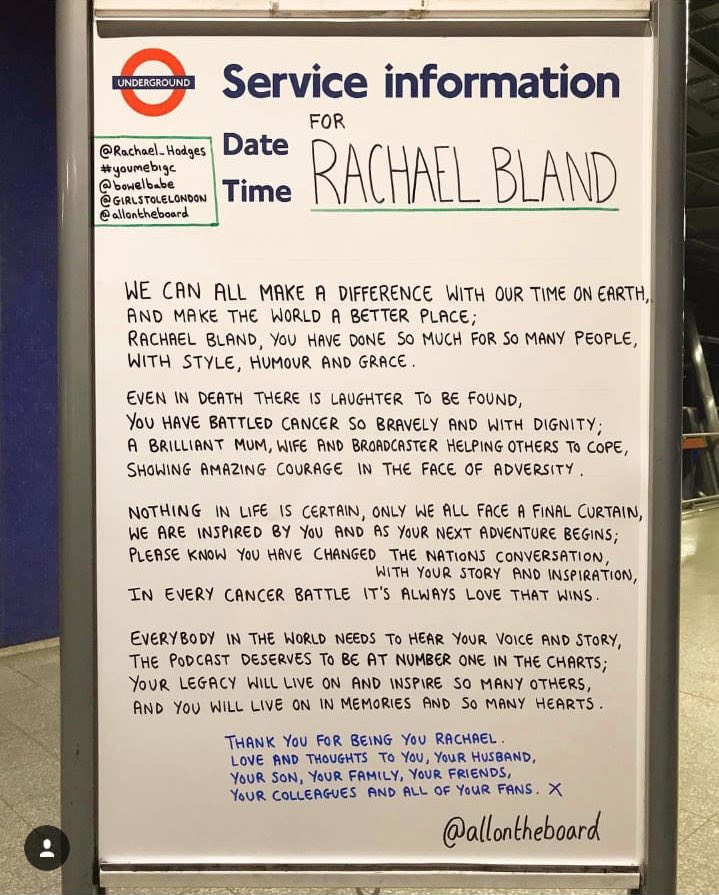 UNDERGROUND
Service information
FOR
Date
RACHAEL BLAND
Time
@Rachael_Hodges
#youmebigc
@bowelbabe
@GIRLSTOLELONDON
@allontheboard
WE CAN ALL MAKE A DIFFERENCE WITH OUR TIME ON EARTH,
AND MAKE THE WORLD A BETTER PLACE;
RACHAEL BLAND, YOU HAVE DONE SO MUCH FOR SO MANY PEOPLE,
WITH STYLE, HUMOUR AND GRACE.
EVEN IN DEATH THERE IS LAUGHTER TO BE FOUND,
YOU HAVE BATTLED CANCER SO BRAVELY AND WITH DIGNITY;
A BRILLIANT MUM, WIFE AND BROADCASTER HELPING OTHERS TO COPE,
SHOWING AMAZING COURAGE IN THE FACE OF ADVERSITY.
NOTHING IN LIFE IS CERTAIN, ONLY WE ALL FACE A FINAL CURTAIN,
WE ARE INSPIRED BY YOU AND AS YOUR NEXT ADVENTURE BEGINS;
PLEASE KNOW YOU HAVE CHANGED THE NATIONS CONVERSATION,
WITH YOUR STORY AND INSPIRATION,
IN EVERY CANCER BATTLE IT'S ALWAYS LOVE THAT WINS.
EVERYBODY IN THE WORLD NEEDS TO HEAR YOUR VOICE AND STORY,
THE PODCAST DESERVES TO BE AT NUMBER ONE IN THE CHARTS;
YOUR LEGACY WILL LIVE ON AND INSPIRE SO MANY OTHERS,
AND YOU WILL LIVE ON IN MEMORIES AND SO MANY HEARTS.
THANK YOU FOR BEING YOU RACHAEL.
LOVE AND THOUGHTS TO YOU, YOUR HUSBAND,
YOUR SON, YOUR FAMILY, YOUR FRIENDS,
YOUR COLLEAGUES AND ALL OF YOUR FANS. X
@allontheboard